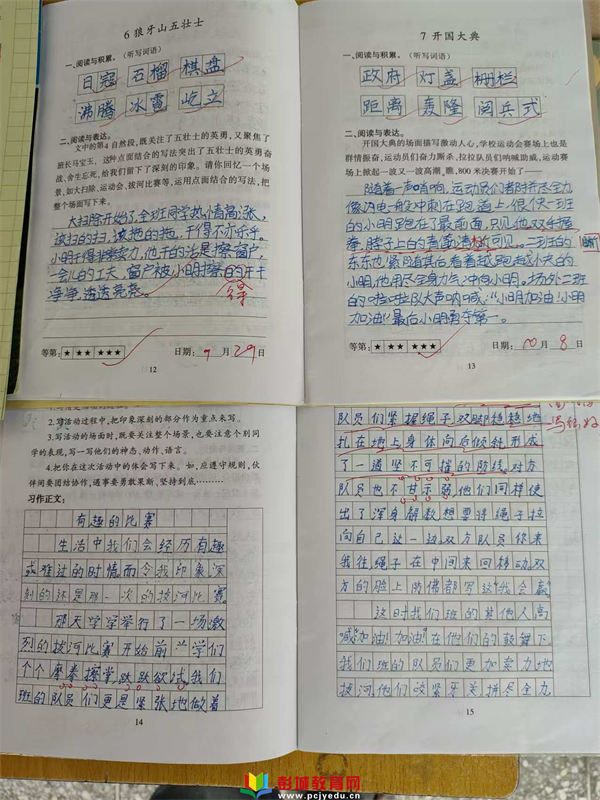 6 狼牙山五壮士
一、阅读与积累。(听写词语)
日寇 石榴 棋盘
沸腾 冰雹 屹立
二、阅读与表达。
文中的第4自然段，既关注了五壮士的英勇，又聚焦了
班长马宝玉，这种点面结合的写法突出了五壮士的英勇奋
战、舍生忘死，给我们留下了深刻的印象。请你回忆一个场
景，如大扫除、运动会、拔河比赛等，运用点面结合的写法，把
整个场面写下来。
大扫除开始了，全班同学热情高涨，
该扫的扫，该拖的拖，干得不亦乐乎。
小明干得非常卖力，他干的活是擦窗户，
会儿的工夫，窗户被小明擦的干干
净净，透透亮亮。
得
等第：★★★ ★★★
日期：9月29日
12
7 开国大典
一、阅读与积累。(听写词语)
政府 灯盏 栅栏
距离 轰隆 阅兵式
二、阅读与表达。
开国大典的场面描写激动人心，学校运动会赛场上也是
群情振奋，运动员们奋力厮杀，拉拉队员们呐喊助威，运动赛
场上掀起一波又一波高潮，瞧，800米决赛开始了——
随着一声哨响，运动员们都用尽全力
像闪电一般冲刺在跑道上，很快一班
的小明跑在了最前面，只见他双手握
拳，脖子上的青筋清晰可见。二班的
东东也紧随其后看着越跑越
的小明，他用尽全身力气冲向小明。场外二班
的啦啦队大声呐喊：“小明加油！小明
加油！”最后小明勇夺第一。
晰
等第：★★★ ★★★
日期：10月8日
13
2.写活动过程中，把印象深刻的部分作为重点来写。
3.写活动的场面时，既要关注整个场景，也要注意个别同
学的表现，写一写他们的神态、动作、语言。
4.把你在这次活动中的体会写下来。如，应遵守规则，伙
伴间要团结协作，遇事要勇敢果断、坚持到底………
习作正文：
有趣的比赛
生活中我们会经历有趣
或难过的时情而令我印象深
刻的还是那一次的拔河比赛。
那天学学举行了一场激
烈的拔河比赛开始前同学们
个个摩拳擦掌，跃跃欲试我们
班的队员们更是紧张地做着
14
队员们紧握绳子双脚
扎在地上身体向后倾斜形成
了一道坚不可摧的防线对方
队员也不甘示弱他们同样使
出了浑身解数想要将绳子拉
向自己这一边双方队员你来
我往绳子在中间来回移动双
方的脸上仿佛都写这“我会赢”
这时我们班的其他人高
喊“加油！加油！”在他们的鼓舞下
我们班的队员们更加卖力地
拔河他们咬紧牙关拼尽全力
15
彭城教育网
www.pcjyedu.cn